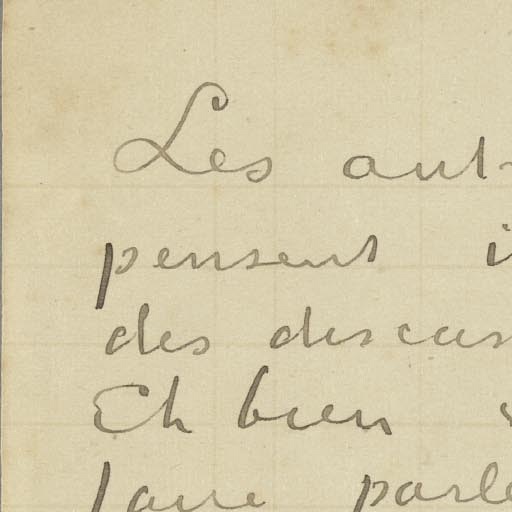 Les aut
pensent i
des discus
Eh bien
faire parle